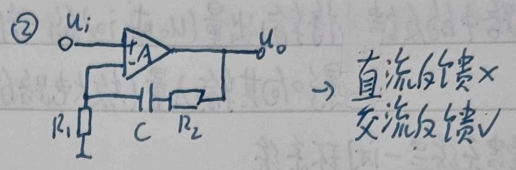 ②
Ui
+
-
A
Uo
R₁
C
R₂
→ 直流反馈×
交流反馈√